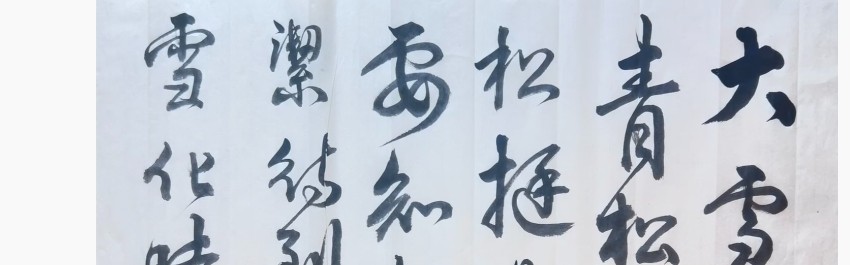 大雪
青松
松挺
要知
潔待到
雪化時